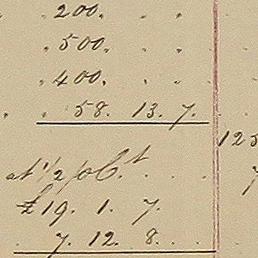 200. . .
. 500. . .
. 400. . .
. . 58. 13. 7.
125
at 1/2 p Ct. . . .
£19. 1. 7.
. 7. 12. 8. . .